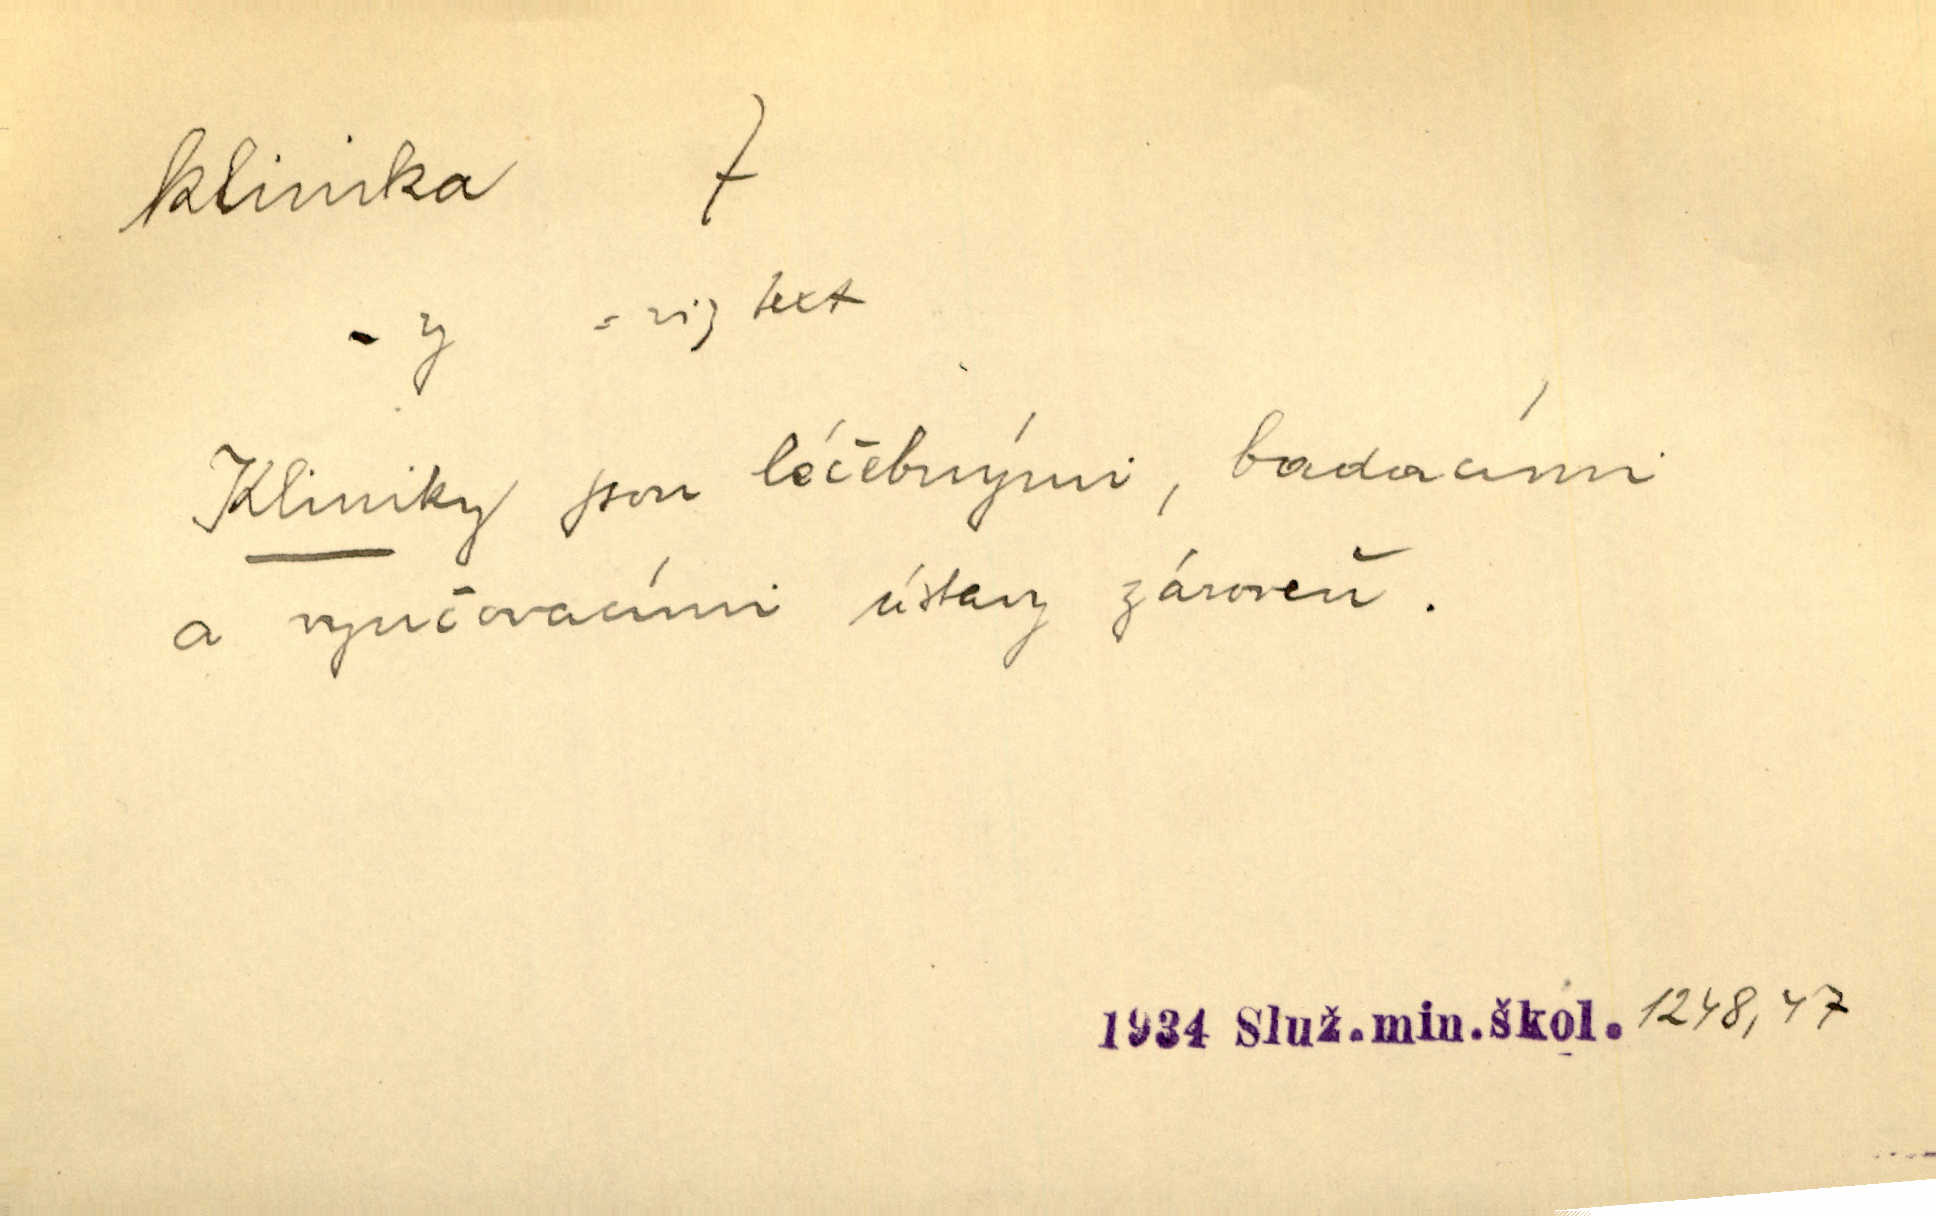 klinika f
- y = viz text
Kliniky jsou léčebnými, badacími
a vyučovacími ústavy zároveň.
1934 Služ.min.škol. 1248, 47